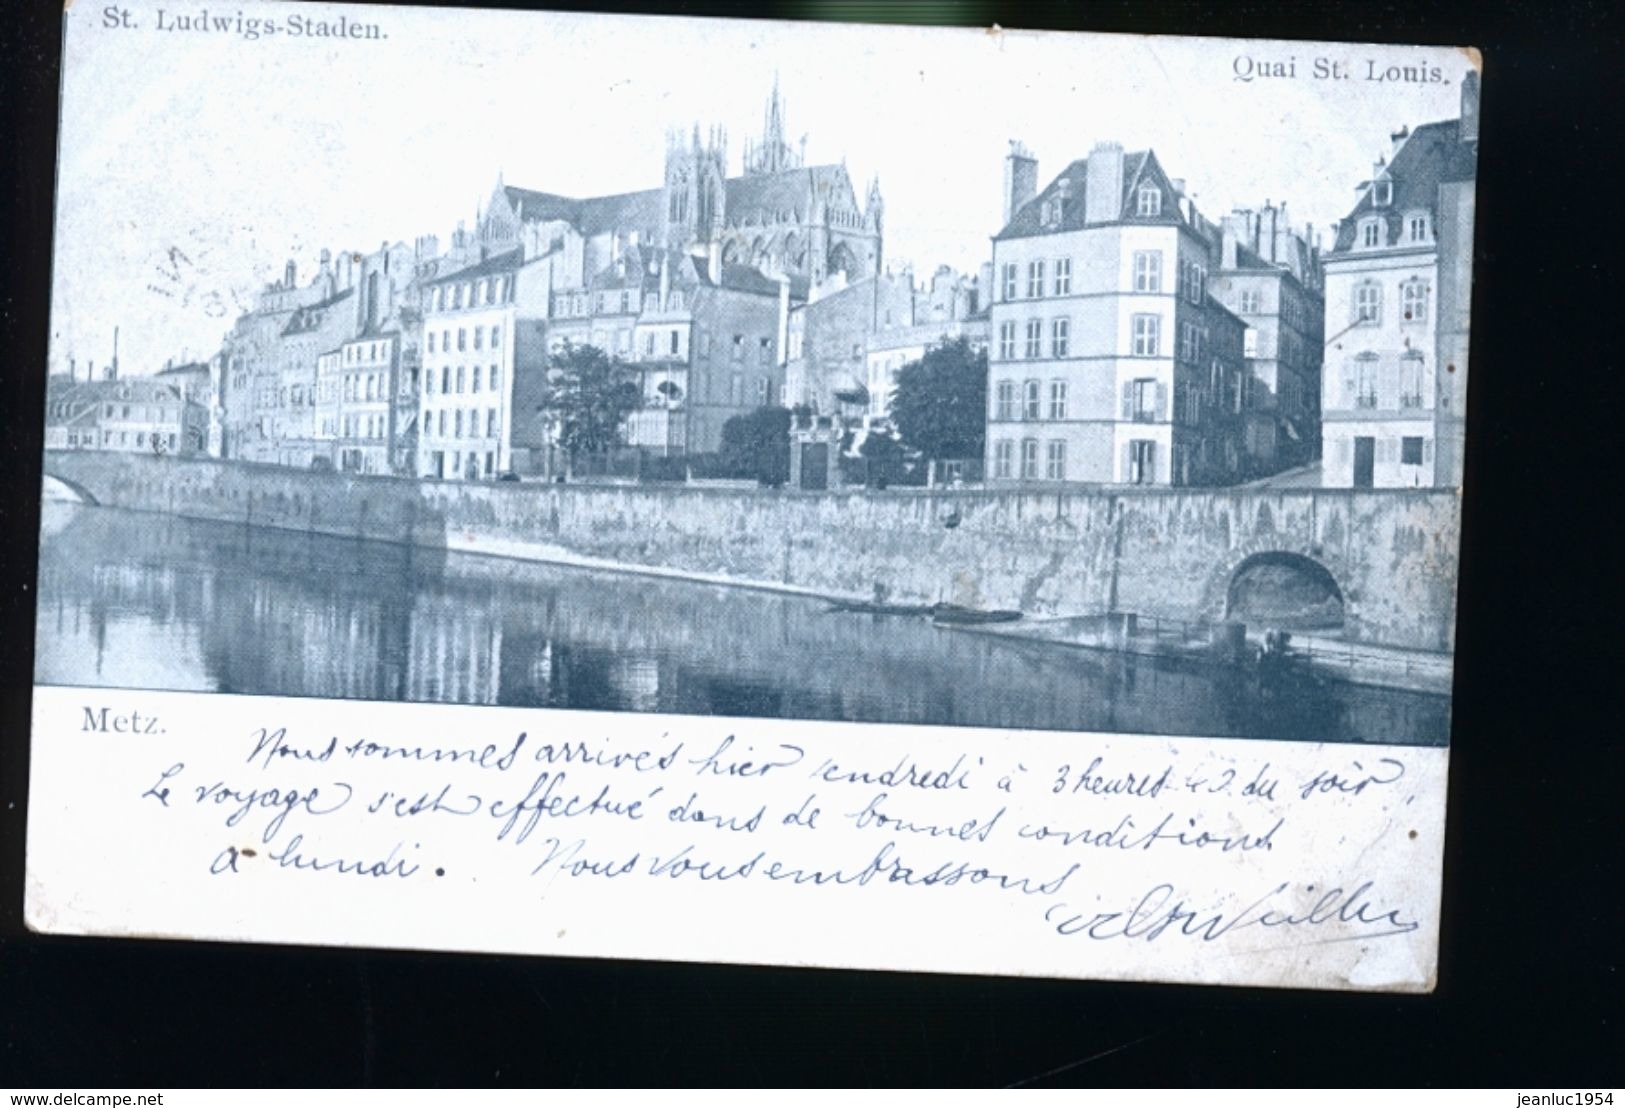 St. Ludwigs-Staden.
Quai St. Louis.
Metz.
Nous sommes arrivés hier vendredi à 3 heures du soir,
Le voyage s'est effectué dans de bonnes conditions
à lundi. Nous vous embrassons
www.delcampe.com
jeanluc1954